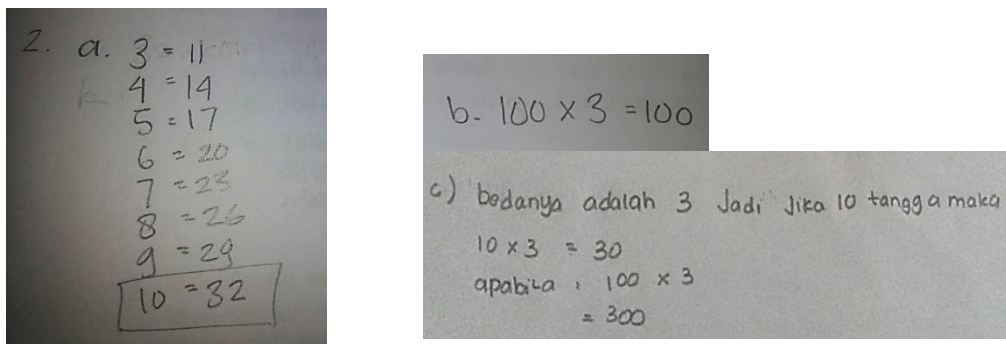 2. a. 3 = 11
4 = 14
5 = 17
6 = 20
7 = 23
8 = 26
9 = 29
10 = 32
b. 100 x 3 = 100
c) bedanya adalah 3 Jadi Jika 10 tangga maka
10 x 3 = 30
apabila : 100 x 3
= 300